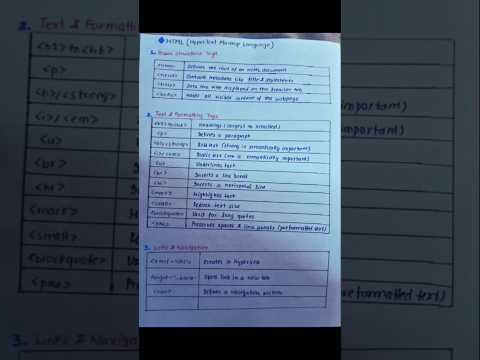 HTML (Hypertext Markup Language)
1. Basic Structure Tags
<html> Defines the root of an HTML document
<head> Contains metadata like title & stylesheets
<title> Sets the title displayed on the browser tab
<body> Holds all visible content of the webpage
2. Text & Formatting Tags
<h1> to <h6> Headings (largest to smallest)
<p> Defines a paragraph
<b>/<strong> Bold text (strong is semantically important)
<i>/<em> Italic text (em is semantically important)
<u> Underlines text
<br> Inserts a line break
<hr> Inserts a horizontal line
<mark> Highlights text
<small> Reduces text size
<blockquote> Used for long quotes
<pre> Preserves spaces & line breaks (preformatted text)
3. Links & Navigation
Creates a hyperlink
Opens link in a new tab
<nav> Defines a navigation section
2. Text & Formatting
<h1> to <h6>
<p>
<b>/<strong>
<i>/<em>
<u>
<br>
<hr>
<mark>
<small>
<blockquote>
<pre>
3. Links & Navigat
important)
portant)
reformatted text)